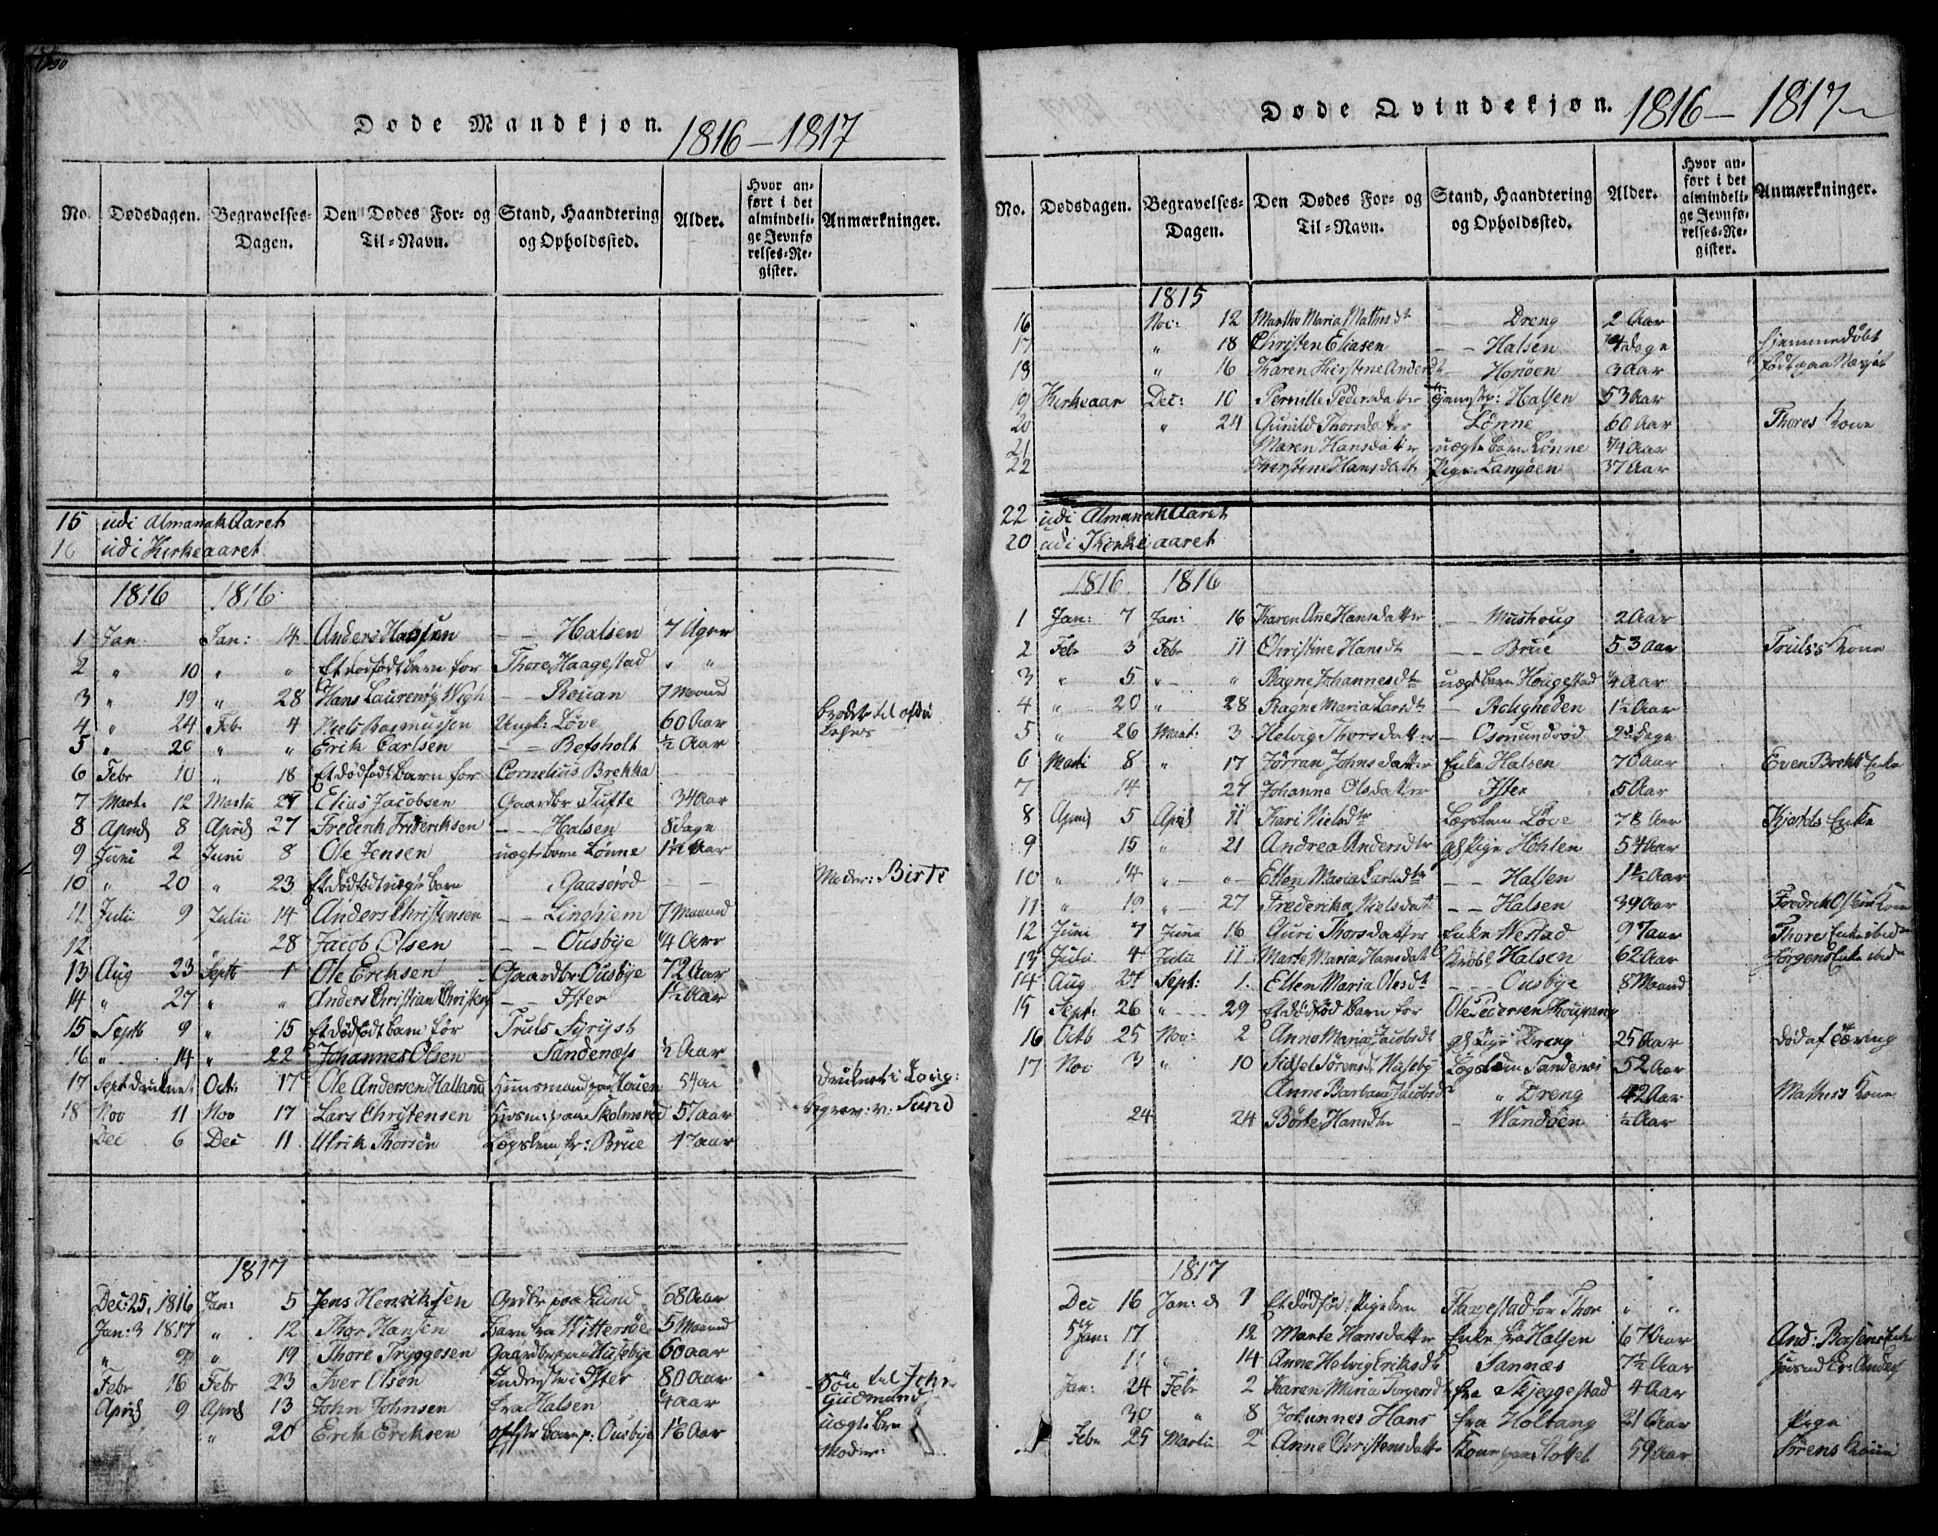 Døde Mandkjøn. 1816 – 1817
No. Dødsdagen. Begravelses-Dagen. Den Dødes For- og Til-Navn. Stand, Haandtering og Opholdssted. Alder. Hvor anført i det almindelige Jevnførelses-Register. Anmærkninger.
15 udi Almanak Aaret
16 udi Kirkeaaret
1816 1816
1 Jan Jan: 14 Anders Hansen – – Halsen 7 Uger
2 " 10 " " Et dødfødt barn for Thore Haagestad " "
3 " 19 " 28 Hans Laurentz Wigh – – Rouan 7 Maaned
4 " 24 Feb 4 Niels Rasmussen Ungk: Løve 60 Aar
5 " 26 " " Erik Carlsen – – Befsholt ½ Aar
6 Febr 10 " 18 Et dødfødt barn for Cornelius Brekka
7 Marti 12 Martii Elias Jacobsen Gaardbr Tufte 34 Aar
8 April 8 April 27 Frederik Frideriksen – – – Halsen 8 dage
9 Juni 2 Juni 8 Ole Jensen uægte barn Lønne Aar
10 " 20 " 23 Et dødfødt uægte barn Gaaserød – – Moder: Birte
11 Julii 9 Julii 14 Anders Christensen – – Linghjem 7 Maaned
12 " 28 Jacob Olsen – – Ousbye ¼ Aar
13 Aug 23 Septb 1 Ole Ericksen Gaardbr Ousbye 72 Aar
14 " 27 " " Anders Christian Christens – – Ister 1½ Aar
15 Septb 9 " 15 Et dødfødt barn for Truls Syrist
16 " 14 " 22 Johannes Olsen – Sandenæss ½ Aar
17 Sept druknet Oct: 17 Ole Andersen Halland Huusmand paa Houen 54 aar druknet i Laug:
18 Nov 11 Nov 17 Lars Christensen Huusm: paa Skolmerød 57 aar begrav: v: Sund
Dec 6 Dec 11 Ulrik Thorsen Lægslem fr: Brue 47 aar
1817
Dec: 25, 1816 Jan: 5 Jens Henriksen Grdbr paa Lund 68 Aar
Jan: 3 1817 " 12 Thor Hansen Barn fra Wittersøe 5 Maaned
" 9 " 19 Thore Tryggesen Gaardbr paa Husebye 60 aar
Febr 16 Febr 23 Iver Olsen Inderste i Ister 80 Aar
April 9 April 13 John Johnsen fra Halsen ¼ aar Søn til John Gudmund
" 20 Erik Eriksen barn p: Ousbye Aar uægte bn Moder:
Døde Qvindekjøn. 1816 – 1817
No. Dødsdagen. Begravelses-Dagen. Den Dødes For- og Til-Navn. Stand, Haandtering og Opholdssted. Alder. Hvor anført i det almindelige Jevnførelses-Register. Anmærkninger.
1815
16 Nov: 12 Marthe Maria Mathisdt – – Dreng 2 Aar
17 " 18 Christen Eliasen – – Halsen dage hjemmedøbt
18 " 16 Karen Kirstine Andersdt – Honøen 3 Aar født paa Næsjet
19 Kirkeaar Dec: 10 Pernille Pedersdatter Halsen 53 Aar
20 " 24 Gunild Thorsdatter Lønne 60 Aar Thores Kone
21 Maren Hansdatter uægte barn Lønne ¾ Aar
22 Kirstine Hansdatt Pige Langøen 37 Aar
22 udi Almanak Aaret
20 udi Kirke aaret
1816 1816
1 Jan: 7 Jan: 16 Karen Ane Hansdatter – Mushoug 2 Aar
2 Febr 3 Febr 11 Christine Hansdt – – Brue 53 Aar Truls's Kone
3 " 5 " " Ragne Johannesdt uægte barn Hougestad ¼ Aar
4 " 20 " 28 Ragne Maria Larsdt – Roligheden 1½ Aar
5 " 26 Mart: 3 Helvig Thorsdatter – Osmundrød dage
6 Marti 8 " 17 Jørran Johnsdatter Enke Halsen 70 Aar Even Brekkes Enke
7 14 27 Johanne Olsdatter Ister 5 Aar
8 April 5 April 11 Kari Nielsdtr Lægslem Løve 78 Aar Kjelds Enke
9 15 " 21 Andrea Andersdtr gl: Pige Hohlen 54 Aar
10 " 14 " " Ellen Maria Larsdtr – – Halsen 1½ Aar
11 " 19 " 27 Frederika Nielsdatt – – Halsen 39 Aar Fredrik Olsens Kone
12 Juni 7 Juni 16 Auri Thorsdatter Enke Westad 97 aar Thores Enke ibid
13 Julii 4 Julii 11 Marte Maria Hansdatt Halsen 62 Aar Jørgens Enke ibid
14 Aug 27 Sept: 1. Ellen Maria Olesdt – – – Ousbye 8 Maaned
15 Sept: 26 " 29 Et dødfød barn for Ole Pedersen
16 Octb 25 Nov: 2 Anne Maria Jacobsdt gl: Pige Dreng 25 Aar død af tæring
17 Nov 3 " 10 Sidsel Sørensdt Huseby Lægslem Sandenæs 52 Aar
Anne Barbara Jacobsdt " Dreng 42 Aar Mathis's Kone
24 24 Børte Hansdtr – Wandøen ½ Aar
1817
Dec 16 Jan: d 1 Et dødfød: Pige barn Haagestad for Thor " "
Jan: 17 12 Marte Hansdatter Enke fra Halsen 67 Aar And: Enke
11 " 14 Anne Helvig Eriksdt Sannæs 7½ Aar
Jan: 24 Febr 2 Karen Maria Torgersdt fra Skjeggestad 4 Aar
30 " 8 Johannes Hans fra Holtang 21 Aar Pige
Febr 25 Martii 2 Anne Christensdatter Kone paa Nottet 59 Aar Sørens Kone